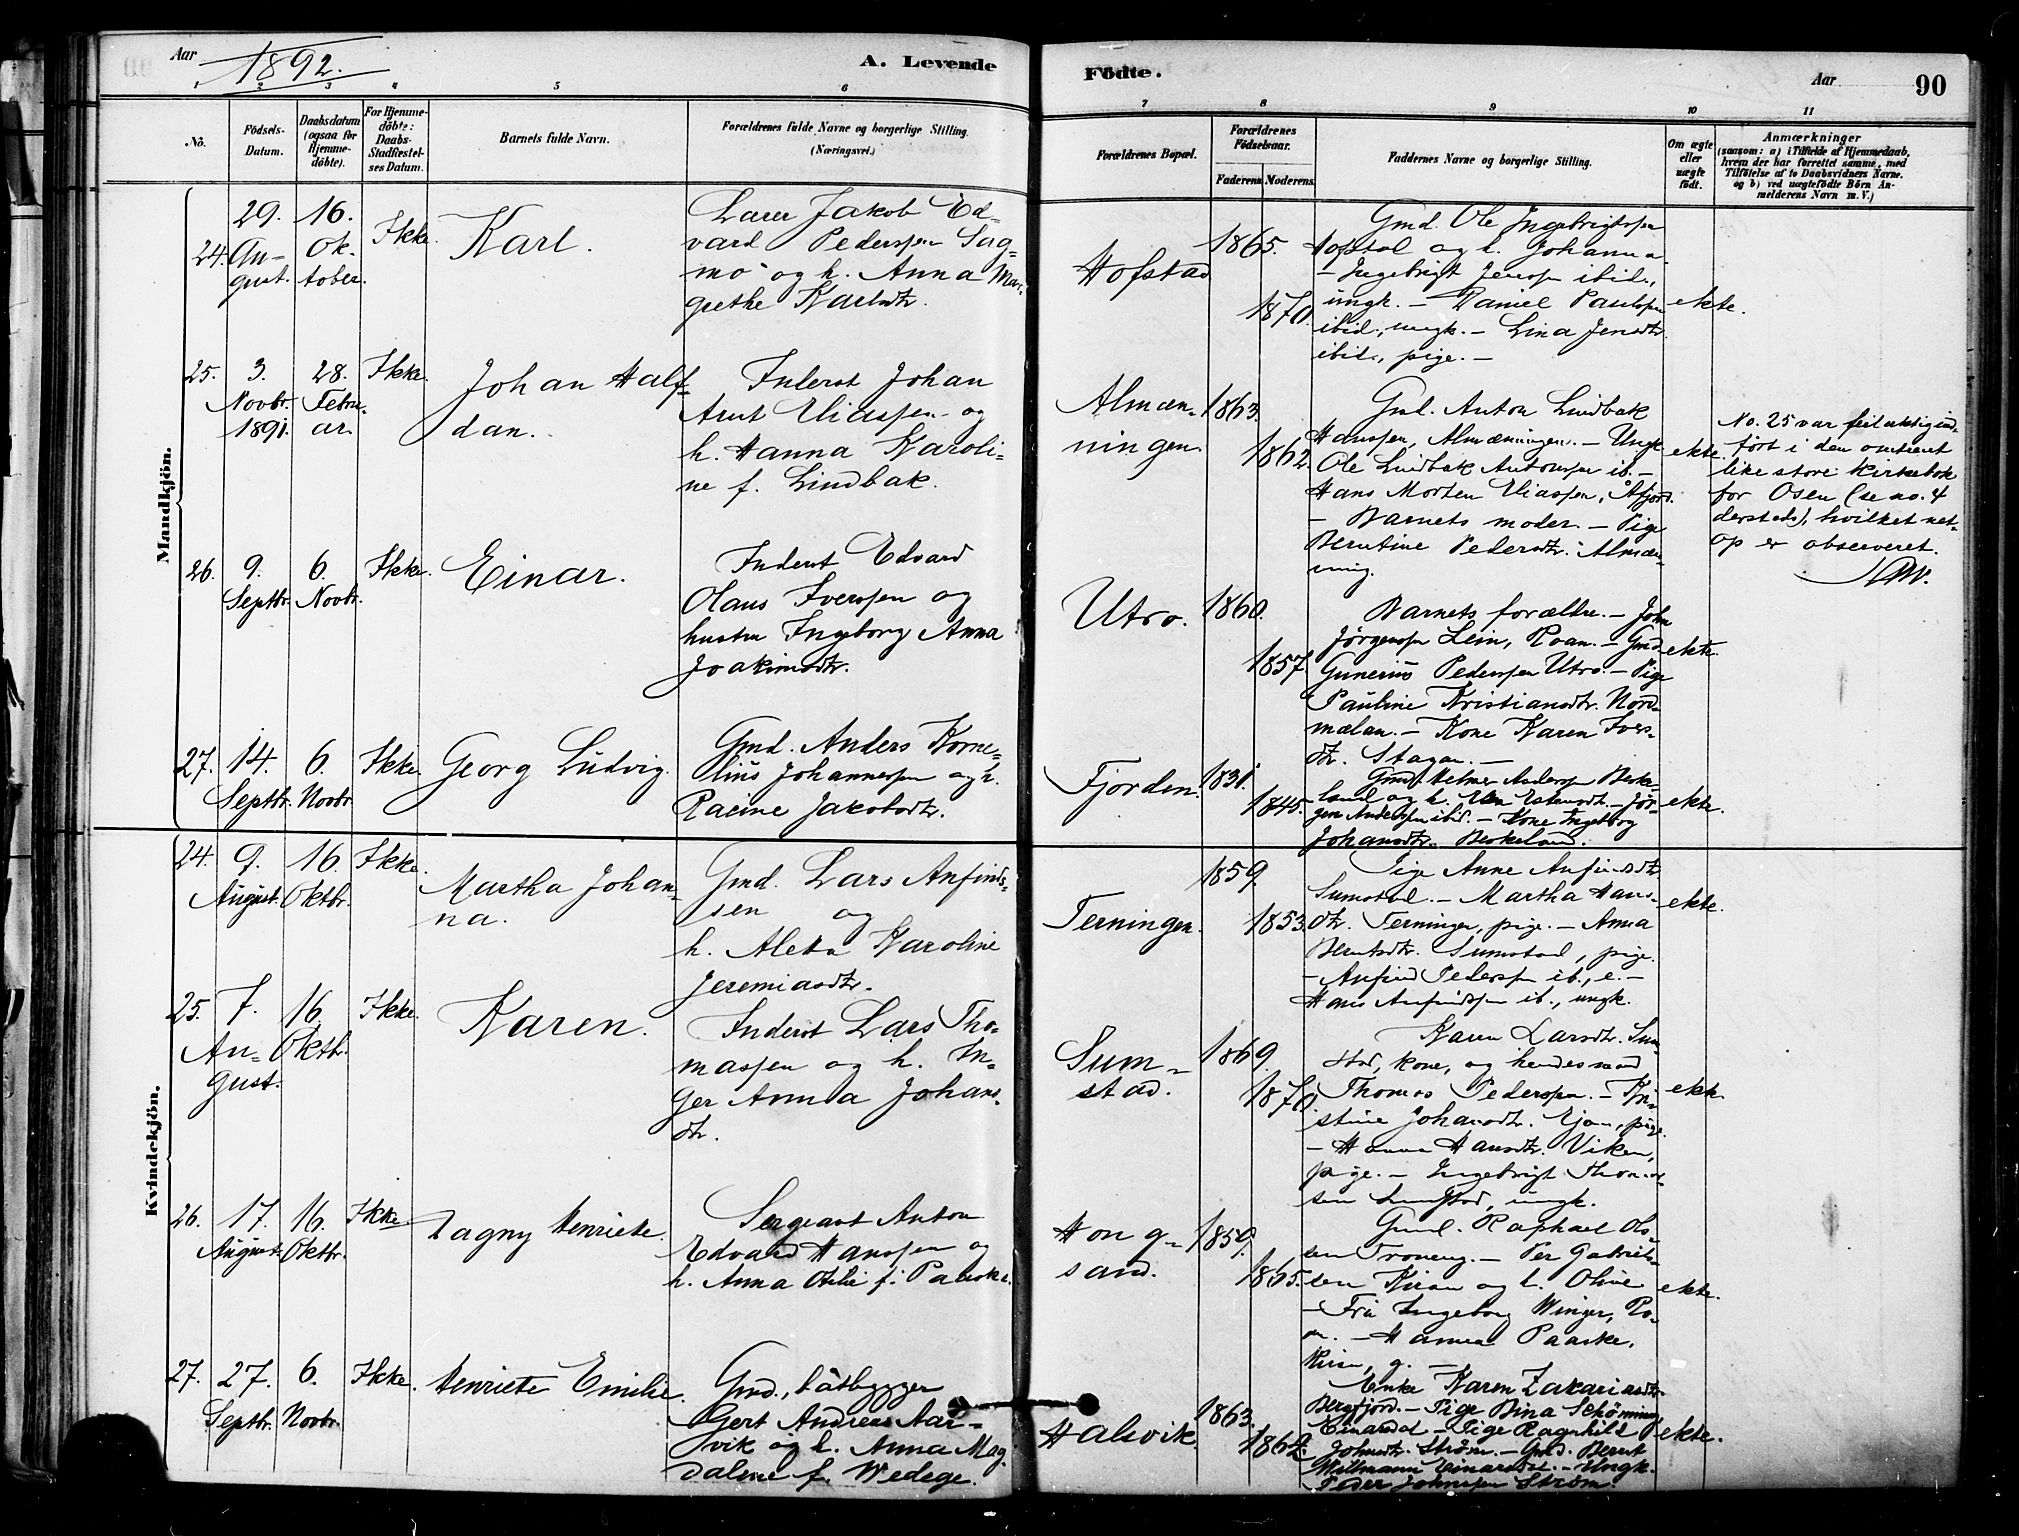 Aar 1892.
A. Levende
Fødte.
Aar
90
1 2 3 4 5 6 7 8 9 10 11
No.
Fødsels-
Datum.
Daabsdatum
(ogsaa for
Hjemme-
døbte).
For Hjemme-
døbte:
Daabs-
Stadfæstel-
ses Datum.
Barnets fulde Navn.
Forældrenes fulde Navne og borgerlige Stilling.
(Næringsvei.)
Forældrenes Bopæl.
Forældrenes
Fødselsaar.
Faderens. Moderens.
Faddernes Navne og borgerlige Stilling.
Om ægte
eller
uægte
født.
Anmærkninger
(saasom: a) i Tilfælde af Hjemmedaab,
hvem der har forrettet samme, med
Tilføielse af to Daabsvidners Navne.
og b) ved uægtefødte Børn An-
melderens Navn m. V.)
Mandkjøn.
24.
29.
Au-
gust.
16.
Ok-
tober.
Ikke.
Karl.
Lærer Jakob Ed-
vard Pederssen Sag-
mo og h. Anna Mar-
grethe Karlsdtr.
Hofstad
1865.
1870.
Gmd. Ole Ingebrigtssen
Hofstad og h. Johanna.
- Ingebrigt Jenssen ibid.,
ungk. - Daniel
ibid., ungk. - Lina Jensdtr.
ibid., pige. -
ekte.
25.
3.
Novbr.
1891.
28.
Febru-
ar.
Ikke.
Johan Half-
dan.
Inderst Johan
Arnt Eliassen og
h. Hanna Karoli-
ne f. Lindbak.
Almæn-
ningen.
1863.
1862.
Gmd. Anton Lindbak
Hanssen, Almænningen. - Ungk.
Ole Lindbak Antonssen ib. -
Hans Morten Eliassen, Åfjord.
- Barnets moder. - Pige
Berntine Pedersdtr. Almæn-
ning.
ekte.
No. 25 var feilaktig ind-
ført i den omtrent
like store kirkebok
for Osen (se no. 4
dersteds), hvilket net-
op er observeret.
26.
9.
Septbr.
6.
Novbr.
Ikke.
Einar.
Inderst Edvard
Olaus Iverssen og
hustru Ingeborg Anna
Joakimsdtr.
Utro.
1860.
1857.
Barnets forældre. - John
Jørgenssen Lein, Roan. - Gmd.
Gunerius Pederssen Utro. - Pige
Pauline Kristiansdtr. Nord-
mælan. - Kone Karen Ivers-
dtr. Stagan. -
ekte.
27.
14.
Septbr.
6.
Novbr.
Ikke.
Georg Ludvig.
Gmd. Anders Korne-
lius Johannessen og h.
Racine Jakobsdtr.
Fjorden.
1831.
1845.
Gmd. Helmer Anderssen Berke-
land og h. - Jør-
gen Anderssen ibid. - Kone Ingeborg
Johansdtr. Berkeland.
ekte.
Kvindekjøn.
24.
9.
August.
16.
Oktbr.
Ikke.
Martha Johan-
na.
Gmd. Lars Anfinds-
sen og
h. Aleta Karoline
Jeremiasdtr.
Terningen.
1859.
1853.
Pige Anne Anfindsdtr.
Sumstad. - Martha Hans-
dtr. Terningen, pige. - Anna
Berntsdtr. Sumstad, pige.
- Anfind Pederssen ib., e. -
Hans Anfindssen ib., ungk.
ekte.
25.
7.
Au-
gust.
16.
Oktbr.
Ikke.
Karen.
Inderst Lars Tho-
massen og h. In-
ger Anna Johans-
dtr.
Sum-
stad.
1869.
1870.
Karen Larsdtr. Sum-
stad, kone, og hendes mand
Thomas Pederssen. - Kri-
stine Johansdtr. pige.
- Hanna Hansdtr. Viken,
pige. - Ingebrigt Thomas-
sen Sumstad, ungk.
ekte.
26.
17.
August.
16.
Oktbr.
Ikke.
Dagny Henriete.
Sergeant Anton
Edvard Hanssen og
h. Anna Otilie f. Paaske.
Hongs-
sand.
1859.
1865.
Gmd. Raphael Ols-
sen Troneng. - Per Gabriels-
sen Kiran og h. Oline
- Fru Ingeborg Winger, Ro-
an. - Hanna Paaske,
Kiran, g. -
ekte.
27.
27.
Septbr.
6.
Novbr.
Ikke.
Henriete Emilie.
Gmd., båtbygger
Gert Andreas Aar-
vik og h. Anna Mag-
dalene f. Wedege.
Halsvik.
1863.
1862.
Enke Karen Zakariasdtr.
Bergfjord. - Pige Bina Schønning
Einarsdal - Pige Ragnhild
Johnsdtr. Strøm. - Gmd. Bernt
Willmann Einarsdal. - Ungk.
Peder Johnssen Strøm.
ekte.